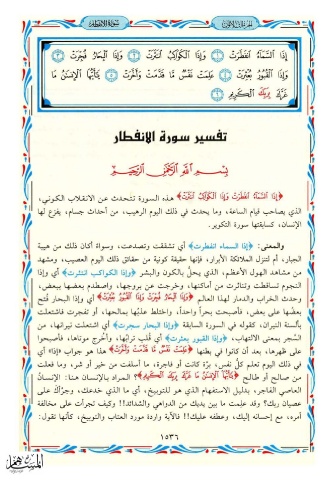 سورة الانفطار
إِذَا السَّمَاءُ انفَطَرَتْ ۝١ وَإِذَا الْكَوَاكِبُ انتَثَرَتْ ۝٢ وَإِذَا الْبِحَارُ فُجِّرَتْ ۝٣
وَإِذَا الْقُبُورُ بُعْثِرَتْ ۝٤ عَلِمَتْ نَفْسٌ مَّا قَدَّمَتْ وَأَخَّرَتْ ۝٥ يَا أَيُّهَا الْإِنسَانُ مَا
غَرَّكَ بِرَبِّكَ الْكَرِيمِ ۝٦
تفسير سورة الانفطار
بسم الله الرحمن الرحيم
﴿إِذَا السَّمَاءُ انفَطَرَتْ وَإِذَا الْكَوَاكِبُ انتَثَرَتْ﴾ هذه السورة تتحدث عن الانقلاب الكوني،
الذي يصاحب قيام الساعة، وما يحدث في ذلك اليوم الرهيب، من أحداث جسام، يفزع لها
الإنسان، كسابقتها سورة التكوير.
والمعنى: ﴿إذا السماء انفطرت﴾ أي تشققت وتصدعت، وسواء أكان ذلك من هيبة
الجبار، أم لتنزل الملائكة الأبرار، فإنها حقيقة كونية من حقائق ذلك اليوم العصيب، ومشهد
من مشاهد الهول الأعظم، الذي يحلّ بالكون والبشر ﴿وإذا الكواكب انتثرت﴾ أي وإذا
النجوم تساقطت وتناثرت من أماكنها، وخرجت عن بروجها، واصطدم بعضها ببعض،
وحدث الخراب والدمار لهذا العالم ﴿وَإِذَا الْبِحَارُ فُجِّرَتْ وَإِذَا الْقُبُورُ بُعْثِرَتْ﴾ أي وإذا البحار فُتح
بعضُها على بعض، فأصبحت بحراً واحداً، واختلط عذبُها بمالحها، أو تفجرت فاشتعلت
بألسنة النيران، كقوله في السورة السابقة ﴿وإذا البحار سجرت﴾ أي اشتعلت نيرانها، من
السَّجر بمعنى الالتهاب، ﴿وإذا القبور بعثرت﴾ أي قُلب ترابُها، وأخرج موتاها، فأصبحوا
على ظهرها، بعد أن كانوا في بطنها ﴿عَلِمَتْ نَفْسٌ مَّا قَدَّمَتْ وَأَخَّرَتْ﴾ هذا هو جواب ﴿إذا﴾ أي
في ذلك اليوم تعلم كلُّ نفس، برّة كانت أو فاجرة، ما أسلفت من خير أو شر، وما فعلت
من صالح أو طالح ﴿يَا أَيُّهَا الْإِنسَانُ مَا غَرَّكَ بِرَبِّكَ الْكَرِيمِ﴾؟ المراد بالإنسان هنا: الإنسانُ
العاصي الفاجر، بدليل الاستفهام الذي هو للتوبيخ، أي ما الذي خدعك، وجرّأك على
عصيان ربك؟ وقد علمت ما بين يديك من الدواهي والشدائد!! وكيف تجرأت على مخالفة
أمره، مع إحسانه إليك، وعطفه عليك!! فالآية واردة مورد العتاب والتوبيخ، كأنها تقول:
١٥٣٦